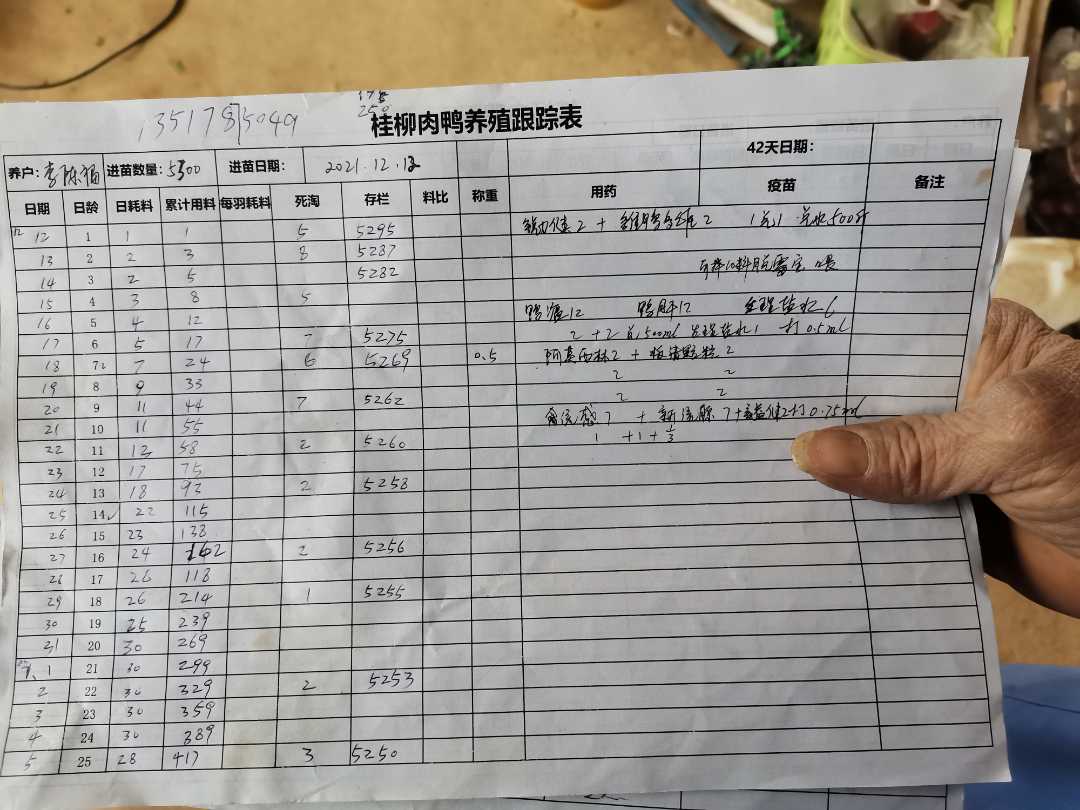 135178 5049
250
桂柳肉鸭养殖跟踪表
养户: 李陈福 进苗数量: 5300 进苗日期: 2021.12.12 42天日期:
日期 日龄 日耗料 累计用料 每羽耗料 死淘 存栏 料比 称重 用药 疫苗 备注
12 12 1 1 1 5 5295
13 2 2 3 8 5287
14 3 2 5 5282
15 4 3 8 5
16 5 4 12 鸭 12 鸭肝12 生理盐水6
17 6 5 17 7 5275 2 + 2 500ml 生理盐水1 打0.5ml
18 7 7 24 6 5269 0.5 阿莫西林2 + 2
19 8 9 33 2 2
20 9 11 44 7 5262 2 2
21 10 11 55 禽流感7 + 7 + 2 打0.75ml
22 11 13 58 2 5260 1 +1+ 1/3
23 12 17 75
24 13 18 93 2 5258
25 14 22 115
26 15 23 138
27 16 24 162 2 5256
28 17 26 118
29 18 26 214 1 5255
30 19 25 239
31 20 30 269
1 21 30 299
2 22 30 329 2 5253
3 23 30 359
4 24 30 389
5 25 28 417 3 5250